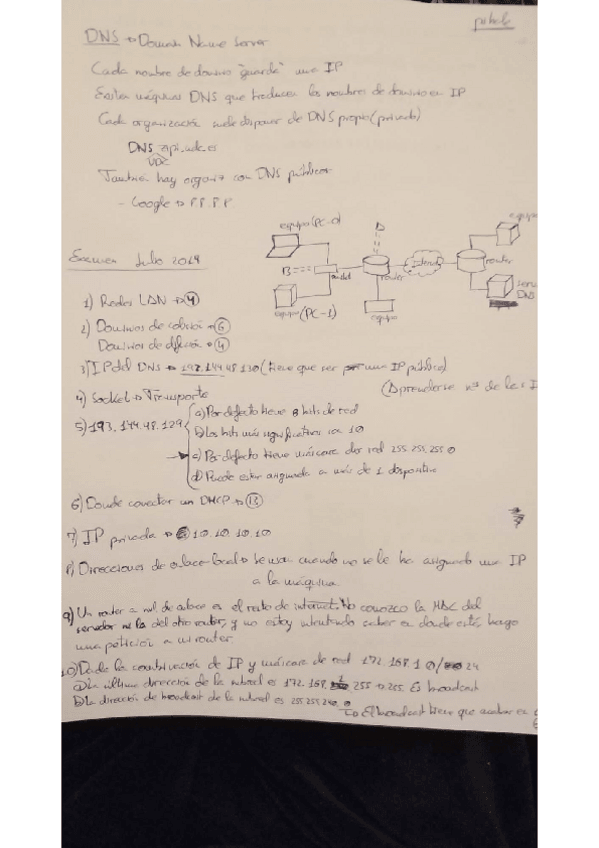 DNS → Domain Name Server
Cada nombre de dominio "guarda" una IP
Existen máquinas DNS que traducen los nombres de dominio en IP
Cada organización puede disponer de DNS propio (privado)
DNS api.udc.es
UDC
También hay organiz con DNS públicos
- Google → 8.8.8.8
equipo (PC-0)
B
router
Internet
router
equipo (PC-1)
equipo
DNS
Examen Julio 2019
1) Redes LAN → 4
2) Dominios de colisión → 6
Dominios de difusión → 4
3) IP del DNS → 193.144.48.130 (tiene que ser una IP pública)
(Aprenderse nº de las I
4) Socket → Transporte
5) 193.144.48.129
a) Por defecto tiene 8 bits de red
b) Los bits más significativos son 10
c) Por defecto tiene máscara de red 255.255.255.0
d) Puede estar asignada a más de 1 dispositivo
6) Donde conectar un DHCP → B
7) IP privada → 10.10.10.10
8) Direcciones de enlace-local → Se usan cuando no se le ha asignado una IP
a la máquina
9) Un router a nivel de enlace es el resto de internet. No conozco la MAC del
servidor ni la del otro router, y no estoy intentando saber en donde está, hago
una petición a mi router
10) Dada la combinación de IP y máscara de red 172.168.1.0/24
a) La última dirección de la subred es 172.168. 255 → 255. Es broadcast
b) La dirección de broadcast de la subred es 255.255.240.0
→ El broadcast tiene que acabar en